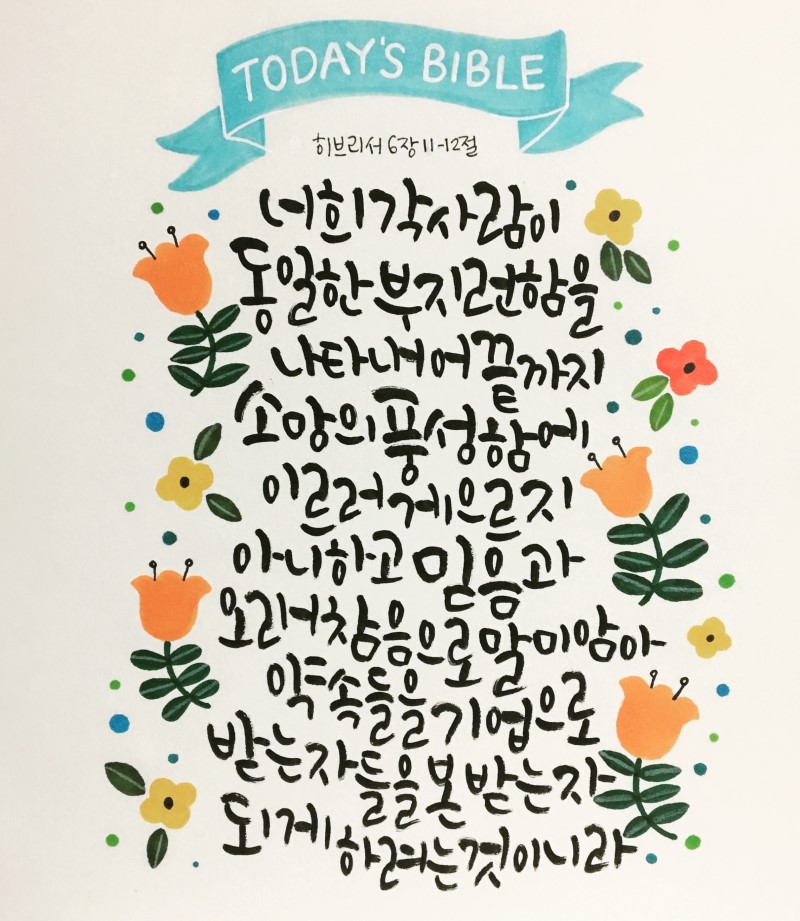 TODAY'S BIBLE
히브리서 6장 11-12절
너희 각 사람이
동일한 부지런함을
나타내어 끝까지
소망의 풍성함에
이르러 게으르지
아니하고 믿음과
오래 참음으로 말미암아
약속들을 기업으로
받는 자들을 본받는 자
되게 하려는 것이니라